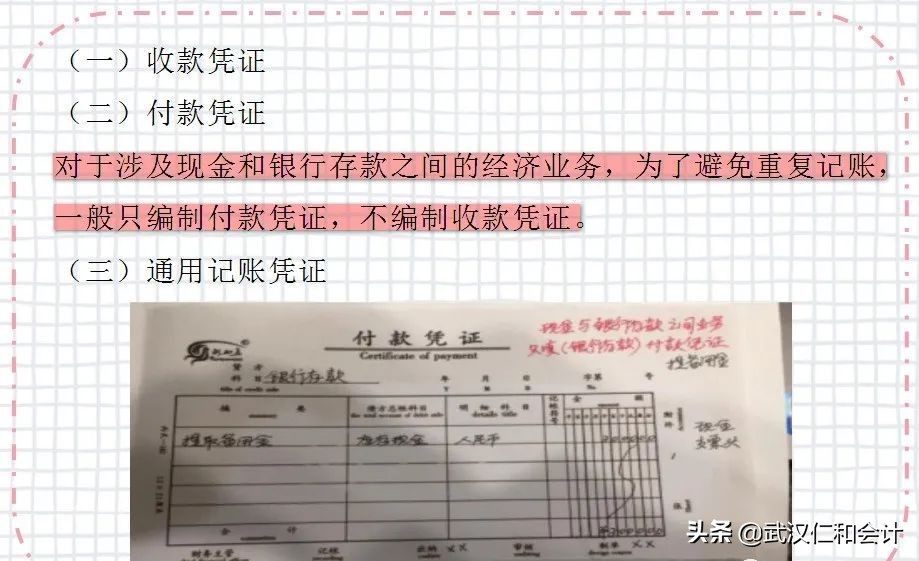 （一）收款凭证
（二）付款凭证
对于涉及现金和银行存款之间的经济业务，为了避免重复记账，
一般只编制付款凭证，不编制收款凭证。
（三）通用记账凭证
付款凭证
Certificate of payment
现金与银行存款之间业务
付款凭证
提备用金
贷方
科目 银行存款
年 月 日
字第 号
摘要
借方总账科目
明细科目
details title
记账符号
金额
附件
提取备用金
库存现金
人民币
200000
现金
支票头
张
合计
¥200000
财务主管
记帐
出纳 XX
审核
制单 XX
头条 @武汉仁和会计